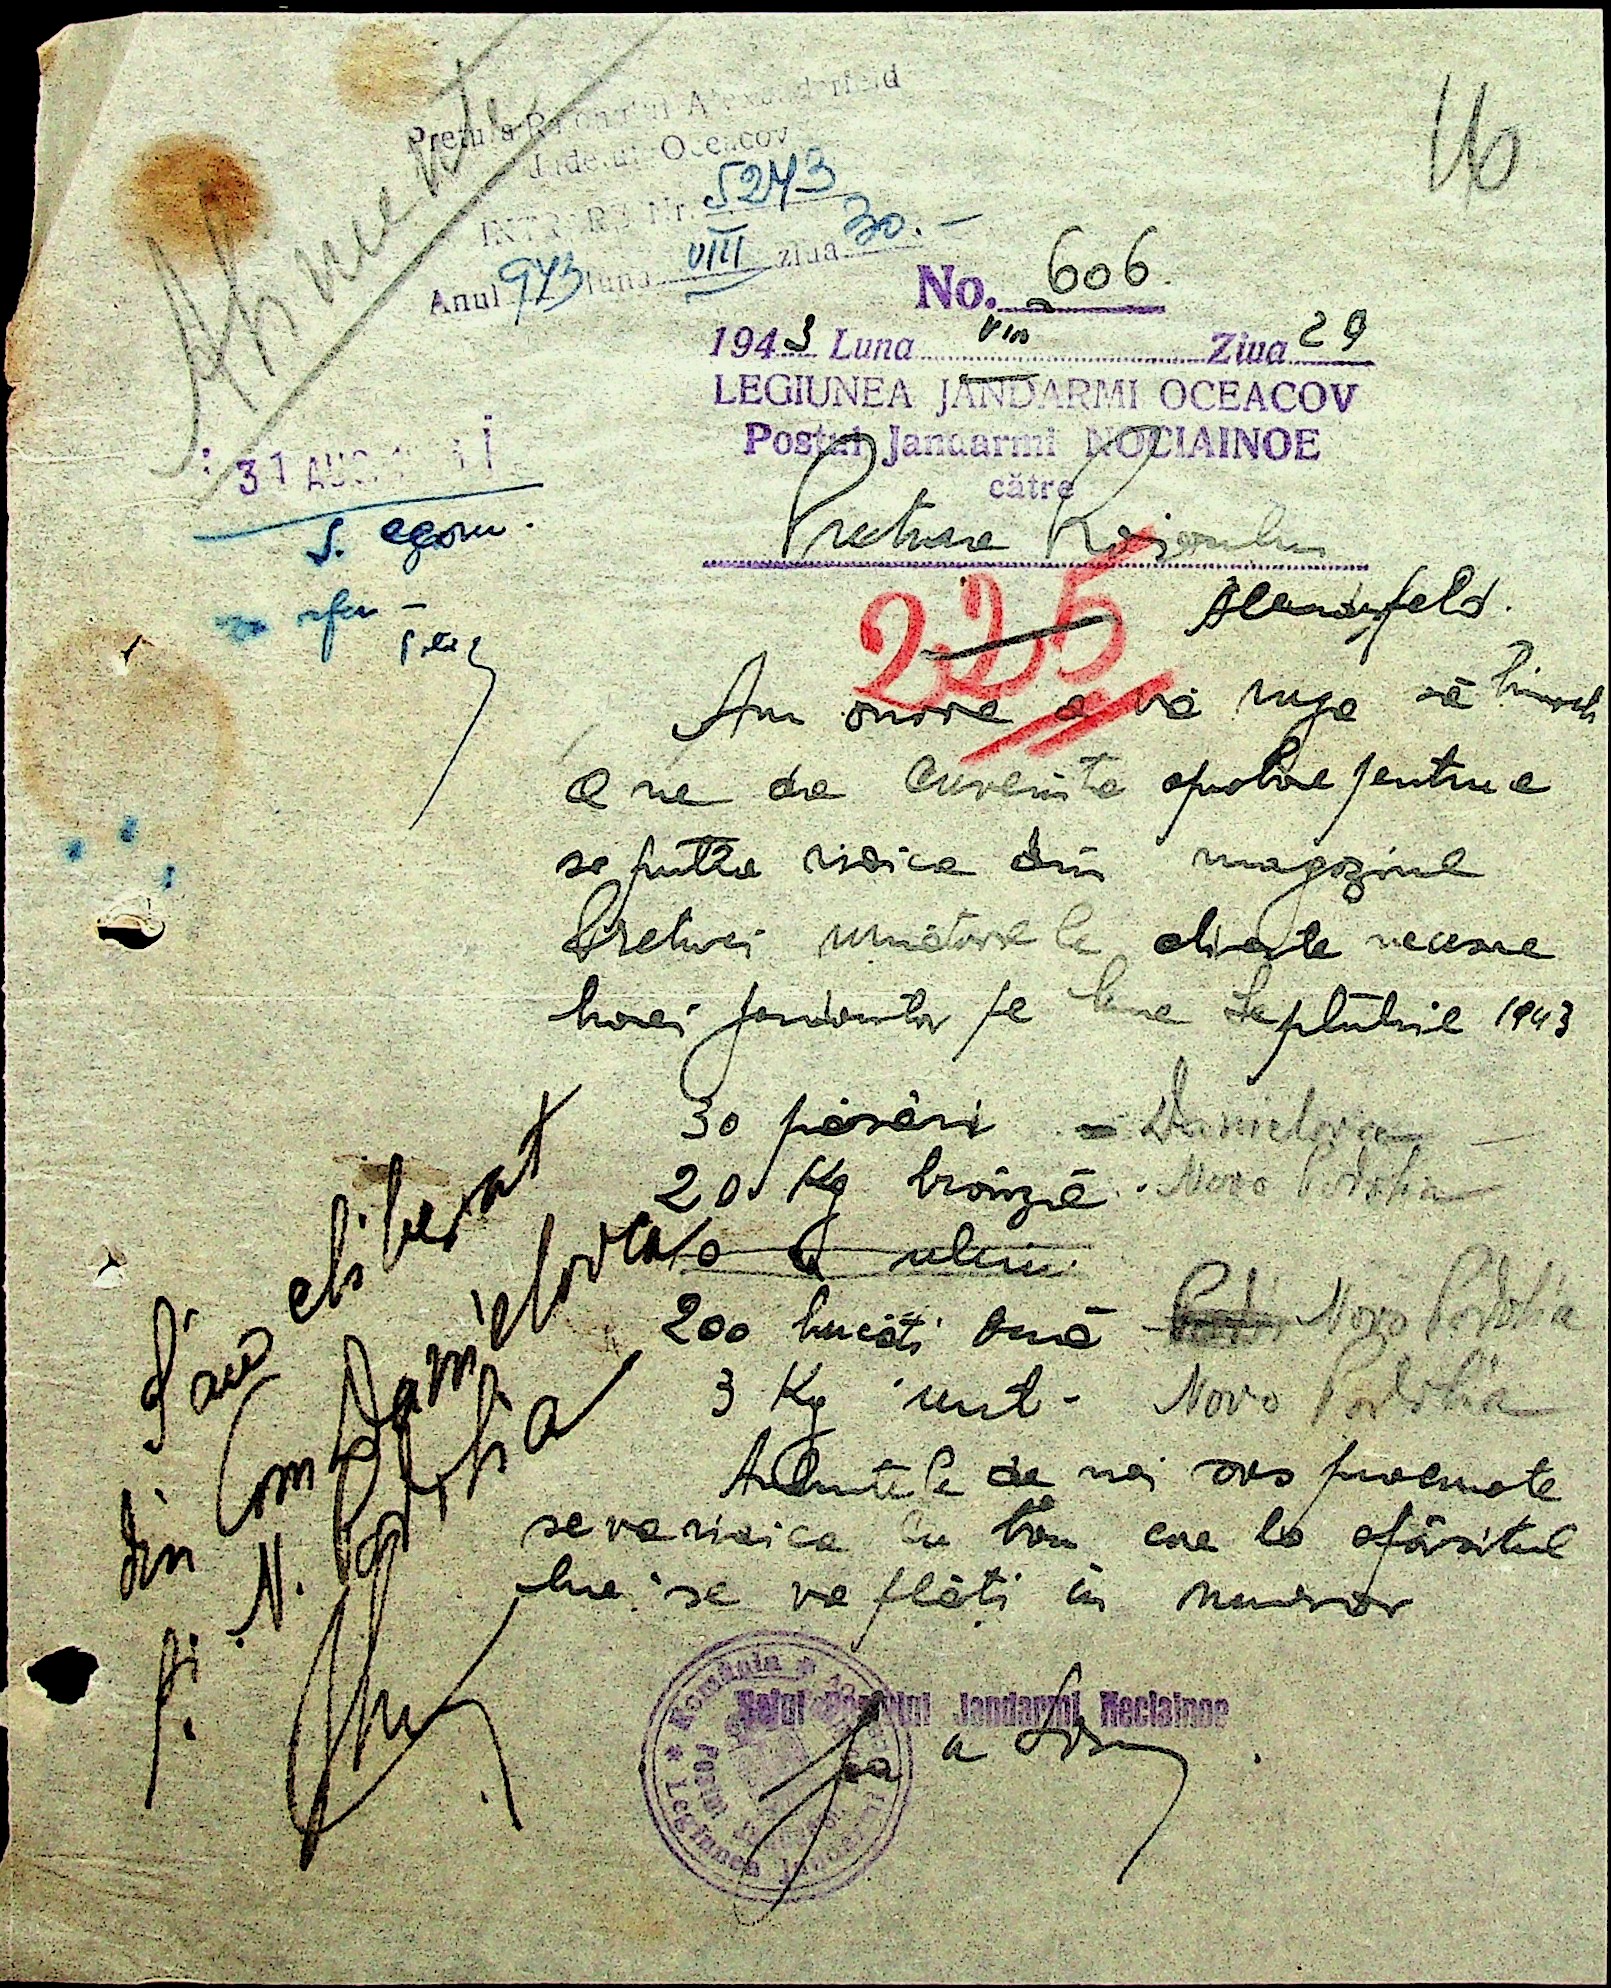 Alimente
Pretura Raionului Alexanderfeld
Județul Oceacov
INTRARE Nr. 5243
Anul 943 luna VIII ziua 30.-
No. 606
1943 Luna VIII Ziua 29
LEGIUNEA JANDARMI OCEACOV
Postul Jandarmi NOCIAINOE
către
Pretura Raionului
Alexanderfeld.
31 AUG.
S. agora.
225
Am onoare a vă ruga să binevoiți
a ne da cuvenita aprobare pentru a
se putea ridica din magazinul
Preturei următoarele alimente necesare
hranei jandarmilor pe luna Septembrie 1943
30 păsări - Danielovca
20 Kg brânză. Novo Podolia
10 " uleiu
200 bucăți ouă Novo Podolia
3 Kg unt - Novo Podolia
Alimentele de noi sus
se va ridica cu bon care la sfârșitul
lunei se va plăti în numerar
S'au eliberat
din Com Danielovca
și N. Podolia
Șeful Postului Jandarmi Nociainoe
România
Postul
Legiunea Jandarmi